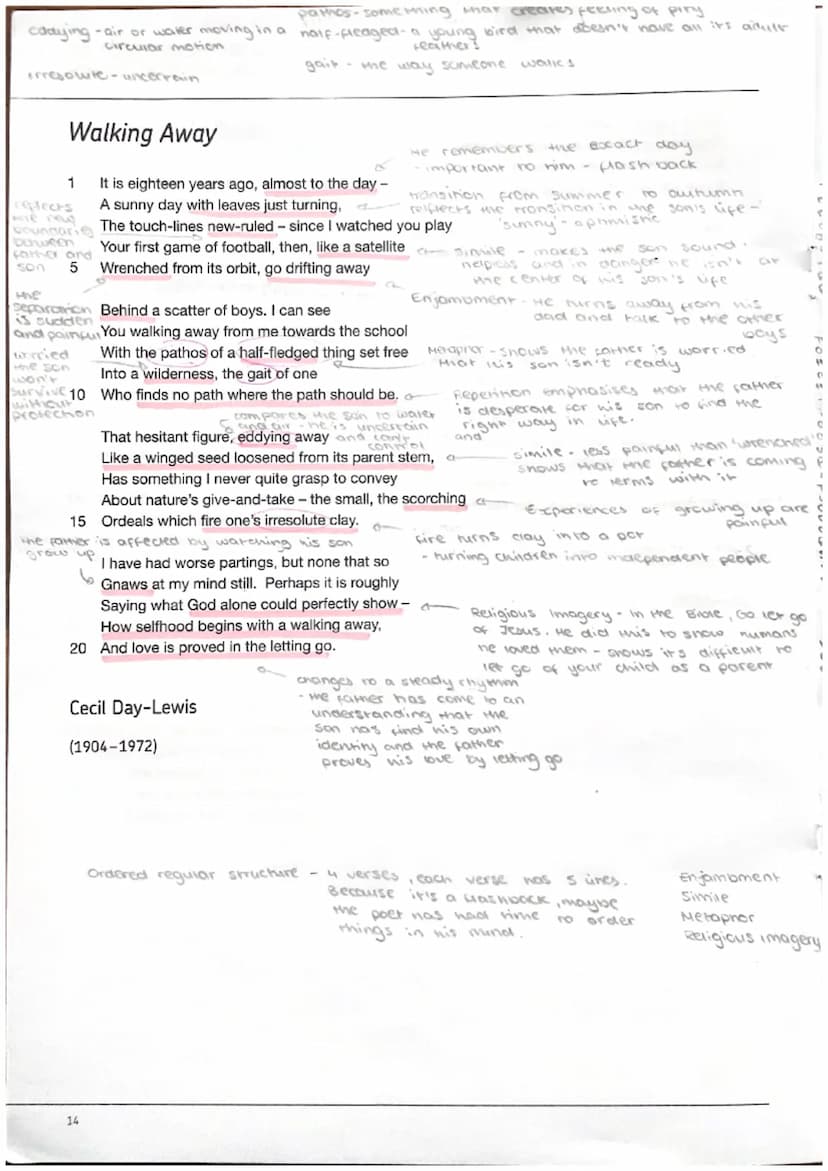 pathos - something that creates feeling of pity
eddying - air or water moving in a circular motion
half-fledged - a young bird that doesn't have all its adult feathers
gait - the way someone walks
irresolute - uncertain
Walking Away
He remembers the exact day
- important to him - flash back
1 It is eighteen years ago, almost to the day –
A sunny day with leaves just turning,
The touch-lines new-ruled – since I watched you play
Your first game of football, then, like a satellite
5 Wrenched from its orbit, go drifting away
transition from summer to autumn
reflects the transition in the son's life -
'sunny' - optimistic
reflects
the new
boundaries
between
father and
son
simile - makes the son sound
helpless and in danger he isn't at
the center of his son's life
the
separation
is sudden
and painful
Enjambment - He turns away from his
dad and talk to the other
boys
Behind a scatter of boys. I can see
You walking away from me towards the school
With the pathos of a half-fledged thing set free
Into a wilderness, the gait of one
10 Who finds no path where the path should be.
worried
the son
won't
survive
without
protection
Metaphor - shows the father is worried
that his son isn't ready
Repetition emphasises that the father
is desperate for his son to find the
right way in life.
compares the son to water
and air - he is uncertain
and can't control
and
That hesitant figure, eddying away
Like a winged seed loosened from its parent stem,
Has something I never quite grasp to convey
About nature's give-and-take – the small, the scorching
15 Ordeals which fire one's irresolute clay.
simile - less painful than 'wrenched'
shows that the father is coming
to terms with it
Experiences of growing up are
painful
fire turns clay into a pot
- turning children into independent people
the father is affected by watching his son
grow up
I have had worse partings, but none that so
Gnaws at my mind still. Perhaps it is roughly
Saying what God alone could perfectly show –
How selfhood begins with a walking away,
20 And love is proved in the letting go.
Religious Imagery - In the Bible, Go let go
of Jesus. He did this to show humans
he loved them - shows it's difficult to
let go of your child as a parent
changes to a steady rhythm
- the father has come to an
understanding that the
son has find his own
identity and the father
proves his love by letting go
Cecil Day-Lewis
(1904–1972)
Ordered regular structure - 4 verses, each verse has 5 lines.
Because it's a flashback, maybe
the poet has had time to order
things in his mind.
Enjambment
Simile
Metaphor
Religious imagery
14